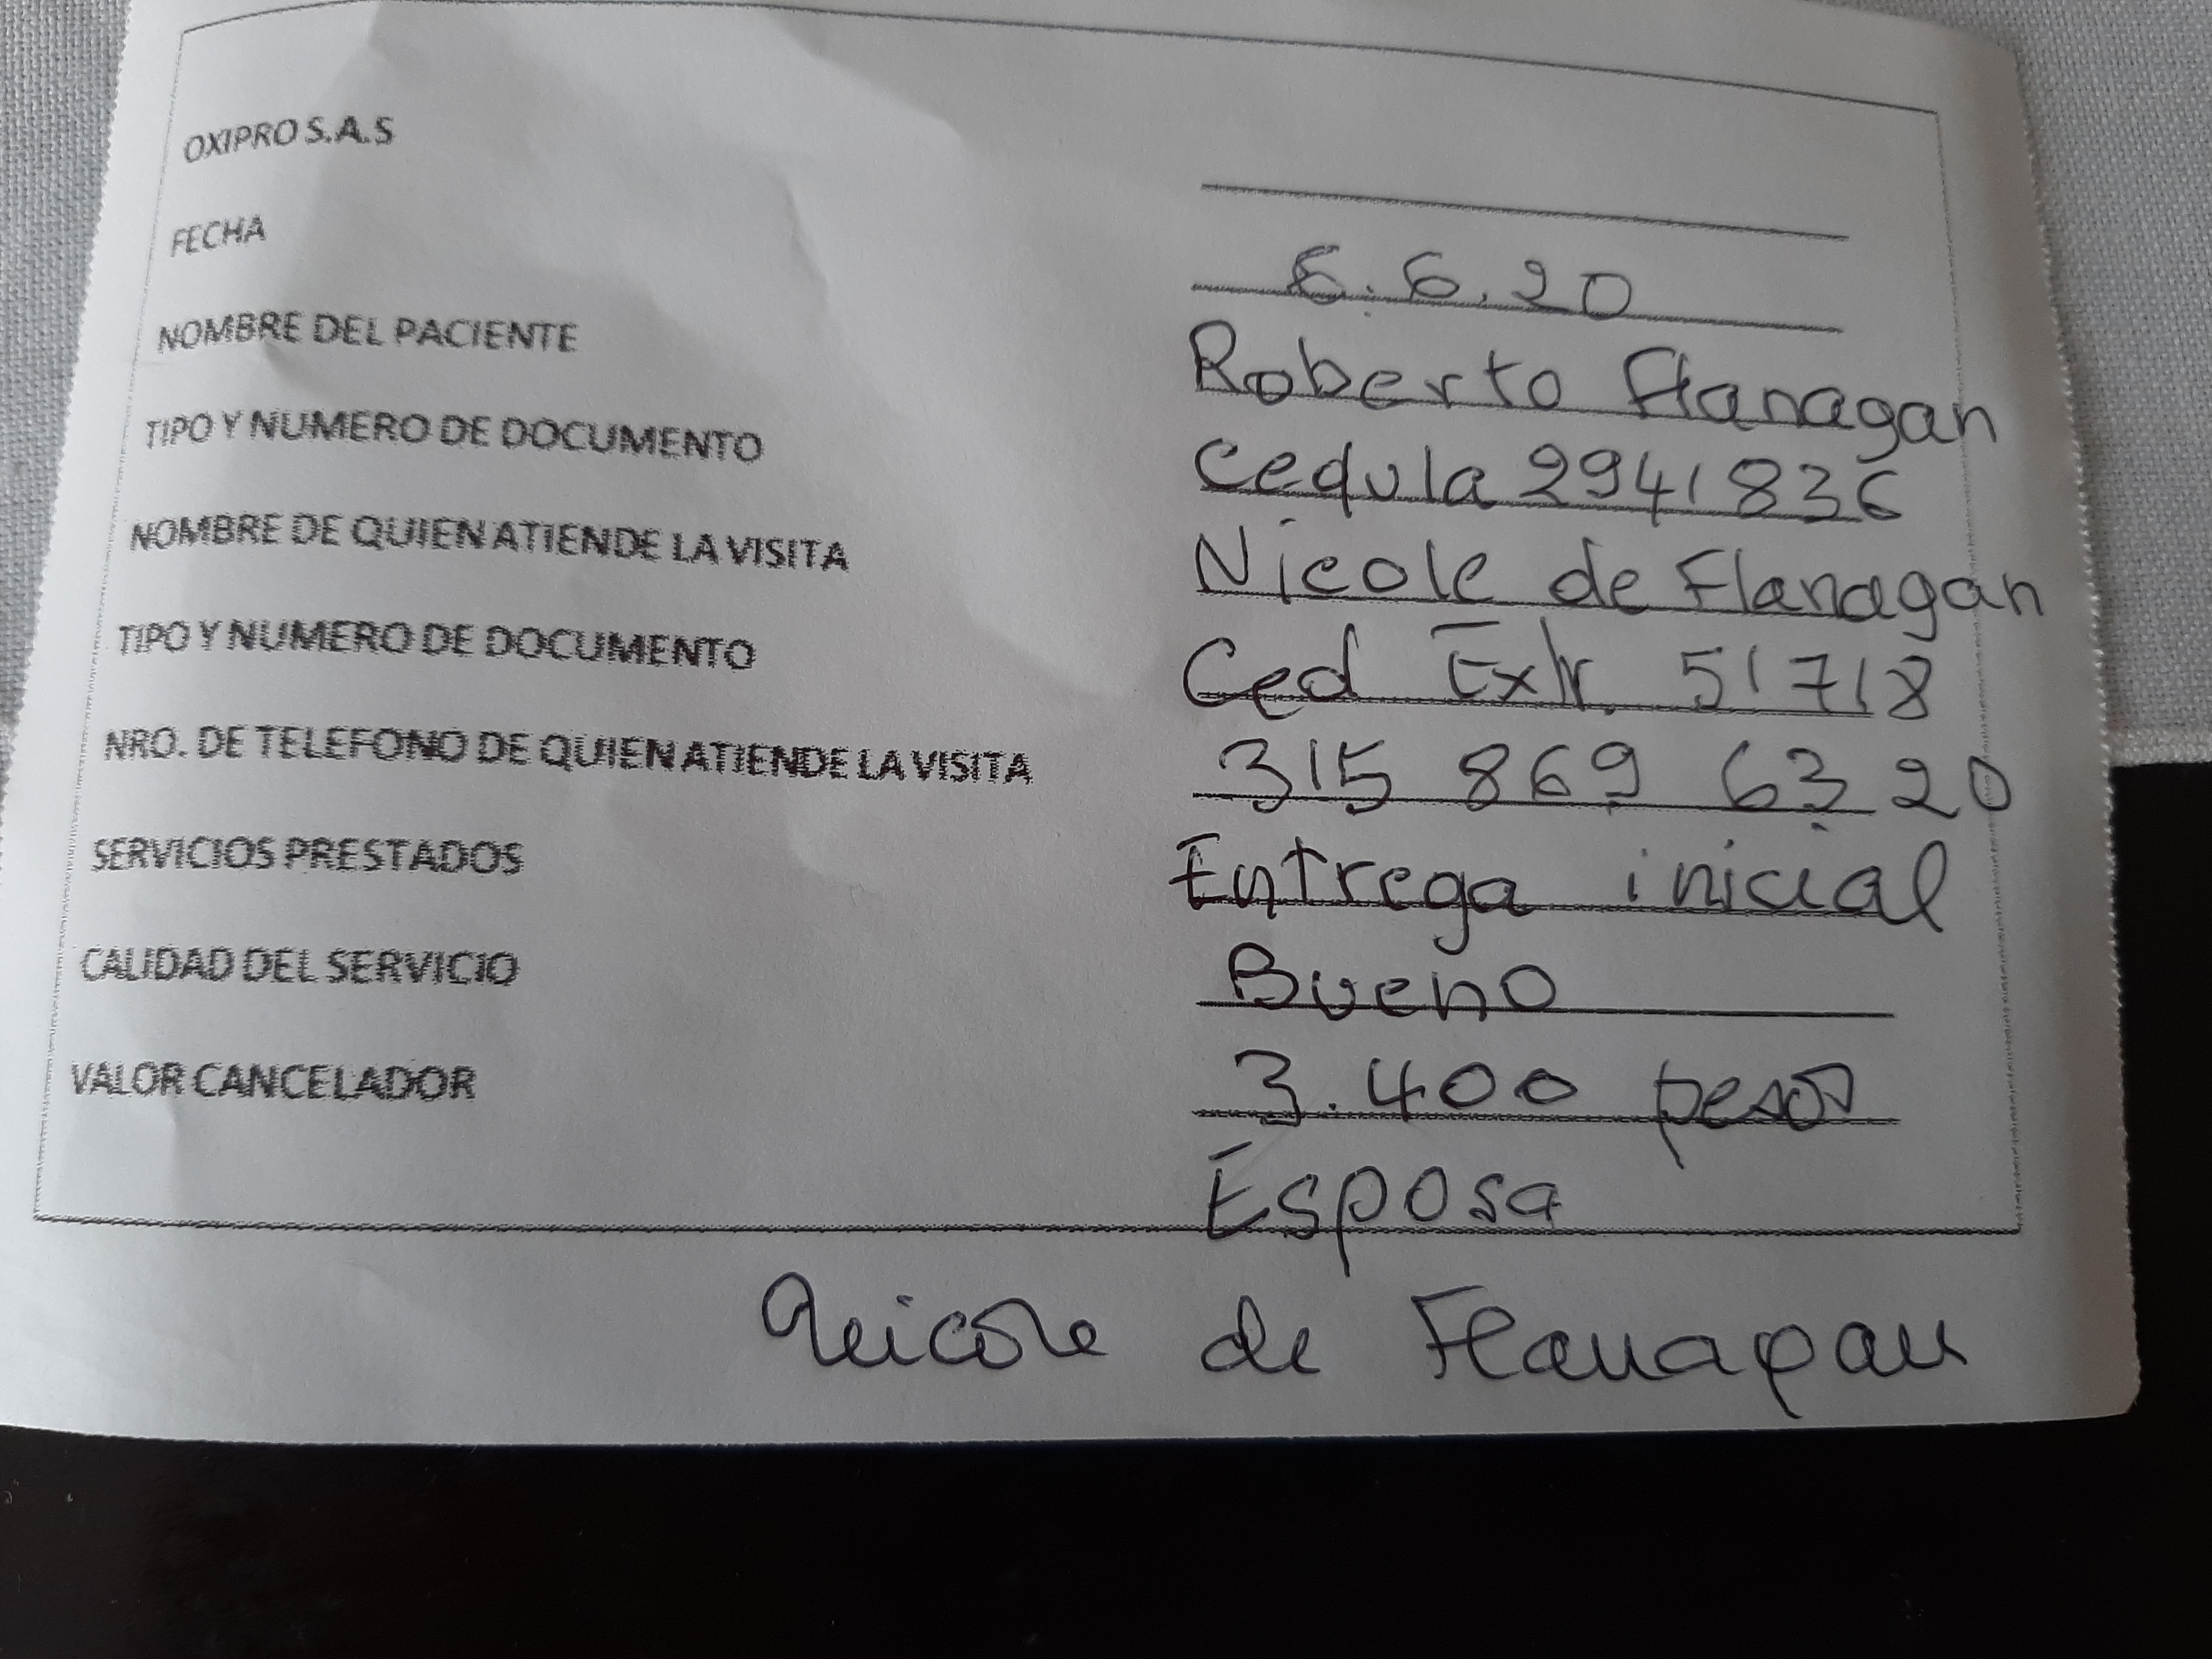 OXIPRO S.A.S
FECHA 6.6.20
NOMBRE DEL PACIENTE Roberto Flanagan
TIPO Y NUMERO DE DOCUMENTO Cedula 2941836
NOMBRE DE QUIEN ATIENDE LA VISITA Nicole de Flanagan
TIPO Y NUMERO DE DOCUMENTO Ced Extr. 51718
NRO. DE TELEFONO DE QUIEN ATIENDE LA VISITA 315 869 63 20
SERVICIOS PRESTADOS Entrega inicial
CALIDAD DEL SERVICIO Bueno
VALOR CANCELADOR 3.400 pesos
Esposa
Nicole de Flanagan